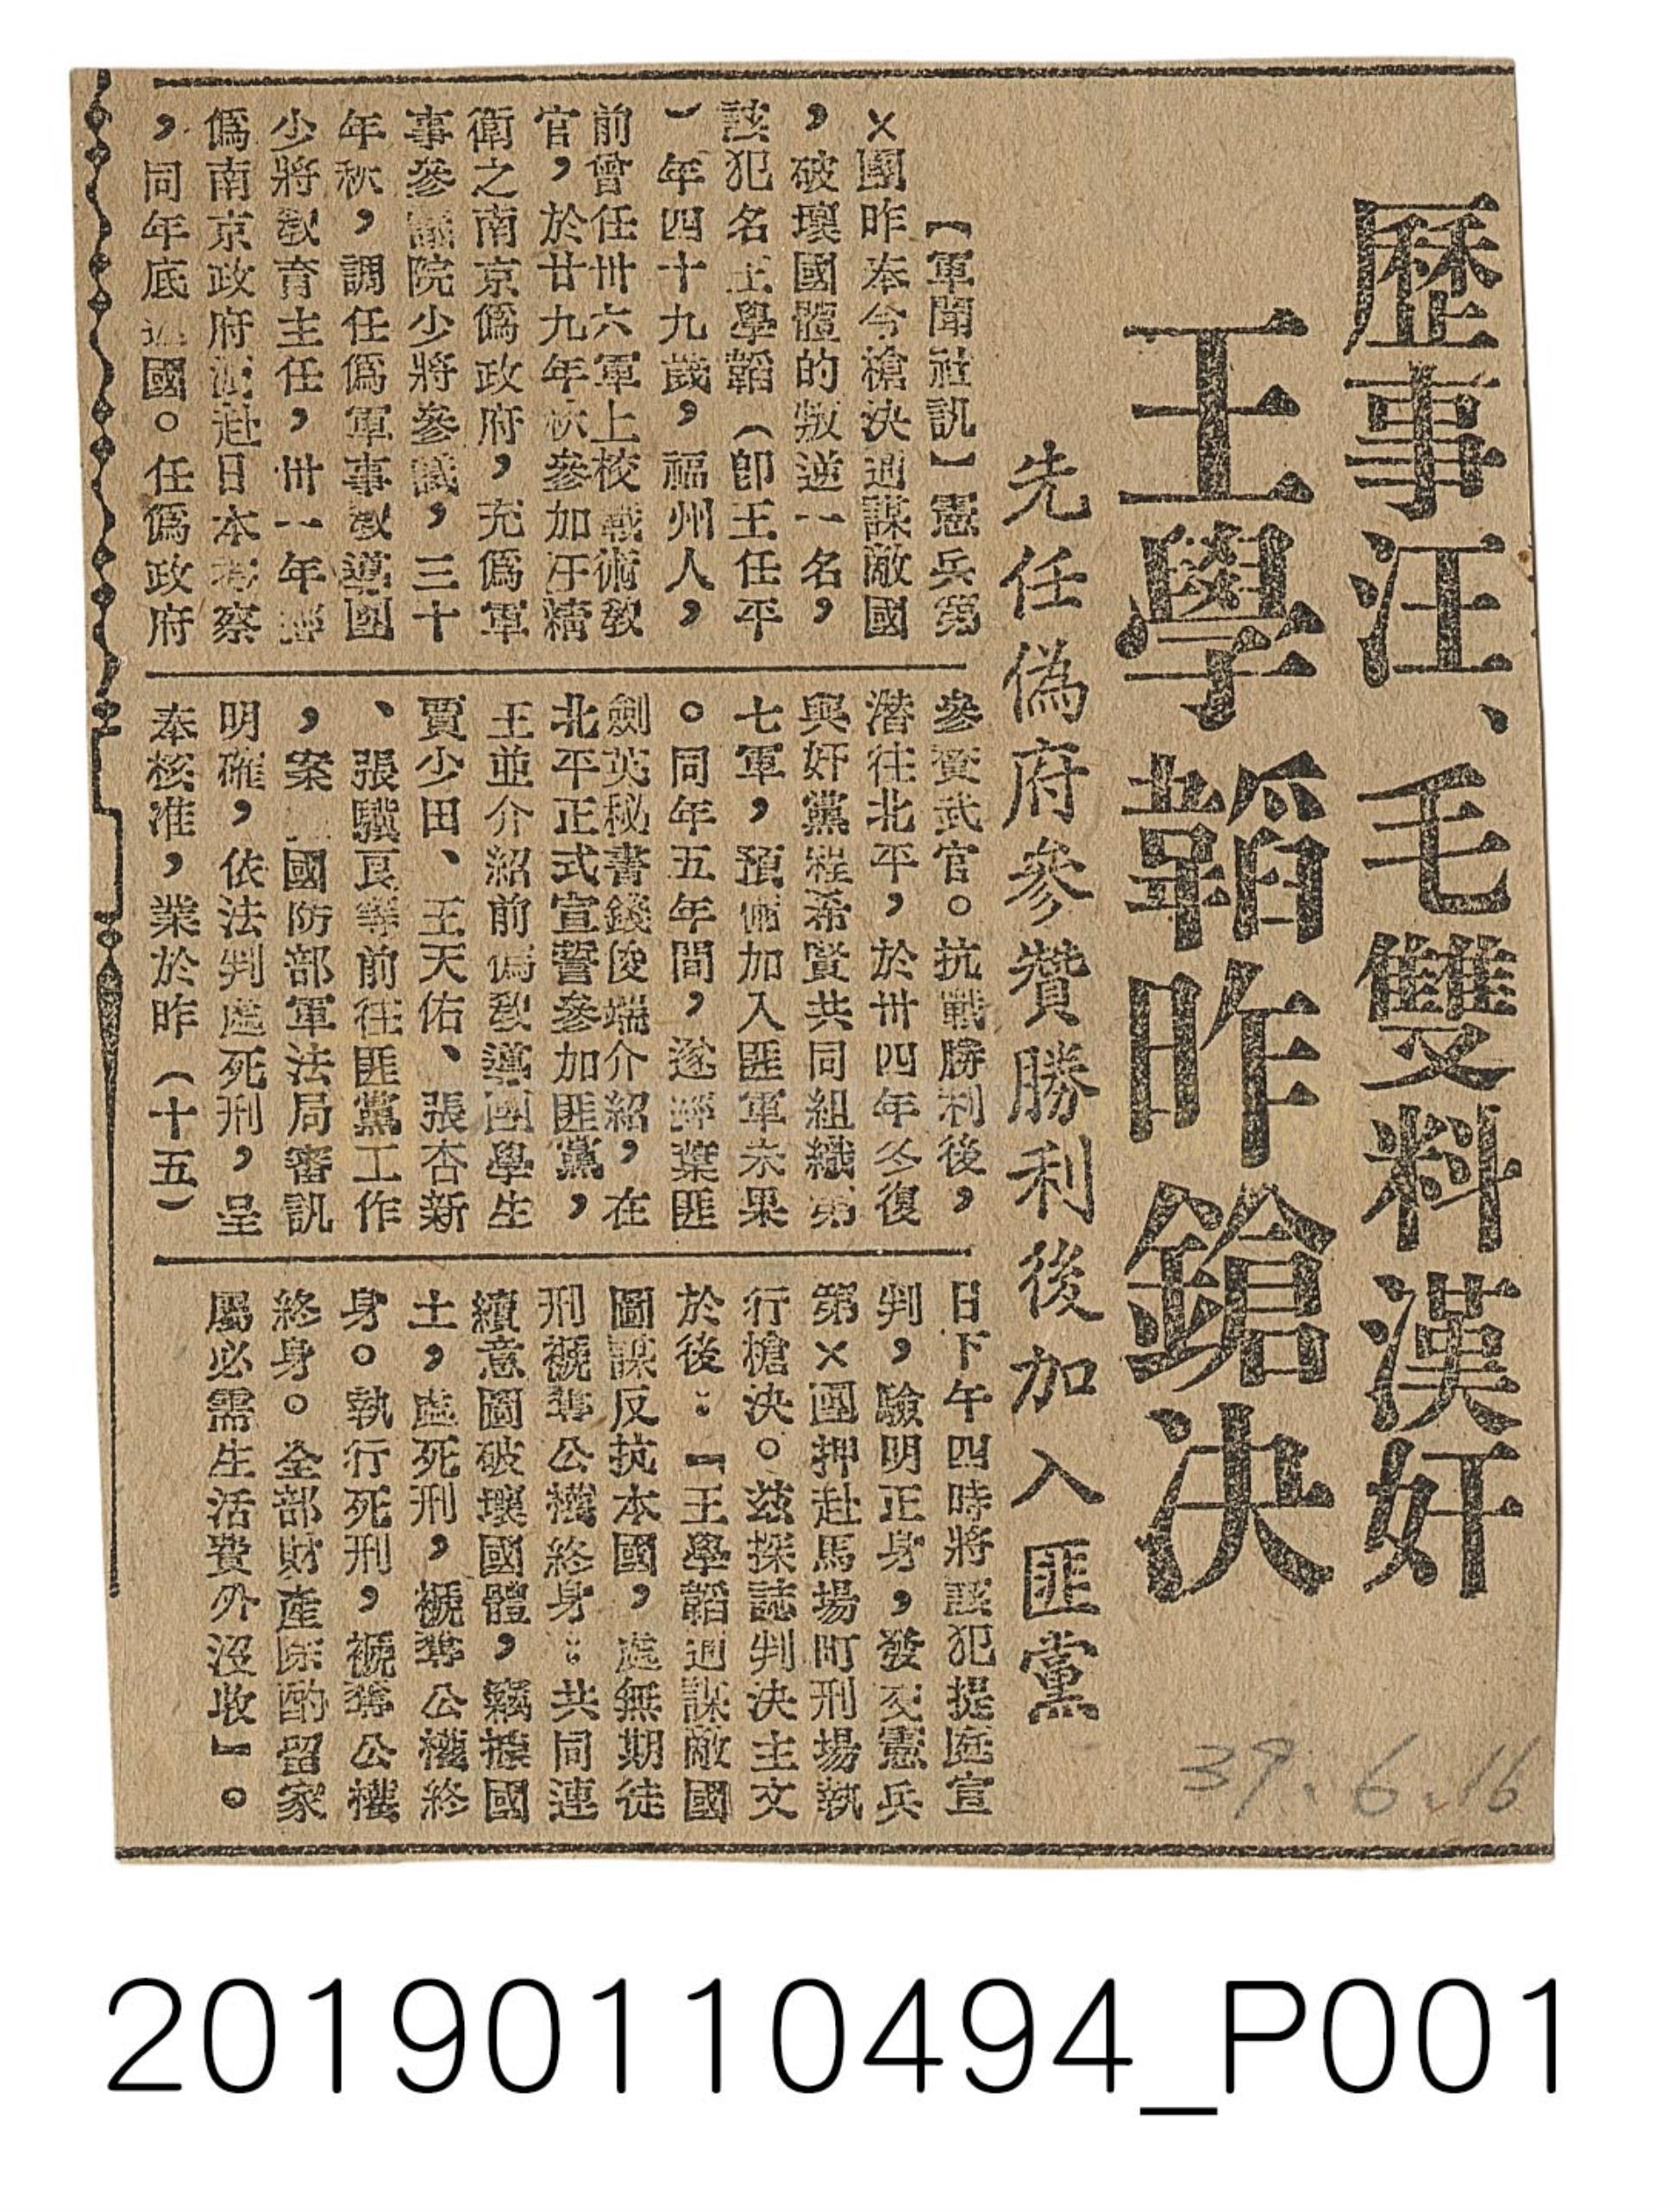 歷事汪、毛雙料漢奸
王學韜昨鎗決
先任偽府參贊勝利後加入匪黨
【軍聞社訊】憲兵第
×團昨奉令槍決通謀敵國
，破壞國體的叛逆一名，
該犯名王學韜（卽王任平
）年四十九歲，福州人，
前曾任卅六軍上校戰術教
官，於廿九年秋參加汪精
衛之南京僞政府，充僞軍
事參議院少將參議，三十
年秋，調任僞軍事教導團
少將教育主任，卅一年經
僞南京政府派赴日本考察
，同年底返國。任僞政府
參贊武官。抗戰勝利後，
潛往北平，於卅四年冬復
與奸黨程希賢共同組織第
七軍，預備加入匪軍未果
。同年五年間，遂經葉匪
劍英秘書錢俊瑞介紹，在
北平正式宣誓參加匪黨，
王並介紹前僞教導團學生
賈少田、王天佑、張杏新
、張驥良等前往匪黨工作
，案 國防部軍法局審訊
明確，依法判處死刑，呈
奉核准，業於昨（十五）
日下午四時將該犯提庭宣
判，驗明正身，發交憲兵
第×團押赴馬場町刑場執
行槍決。茲探誌判決主文
於後：『王學韜通謀敵國
圖謀反抗本國，處無期徒
刑褫奪公權終身：共同連
續意圖破壞國體，竊據國
土，處死刑，褫奪公權終
身。執行死刑，褫奪公權
終身。全部財產除酌留家
屬必需生活費外沒收』。
39.6.16
20190110494_P001